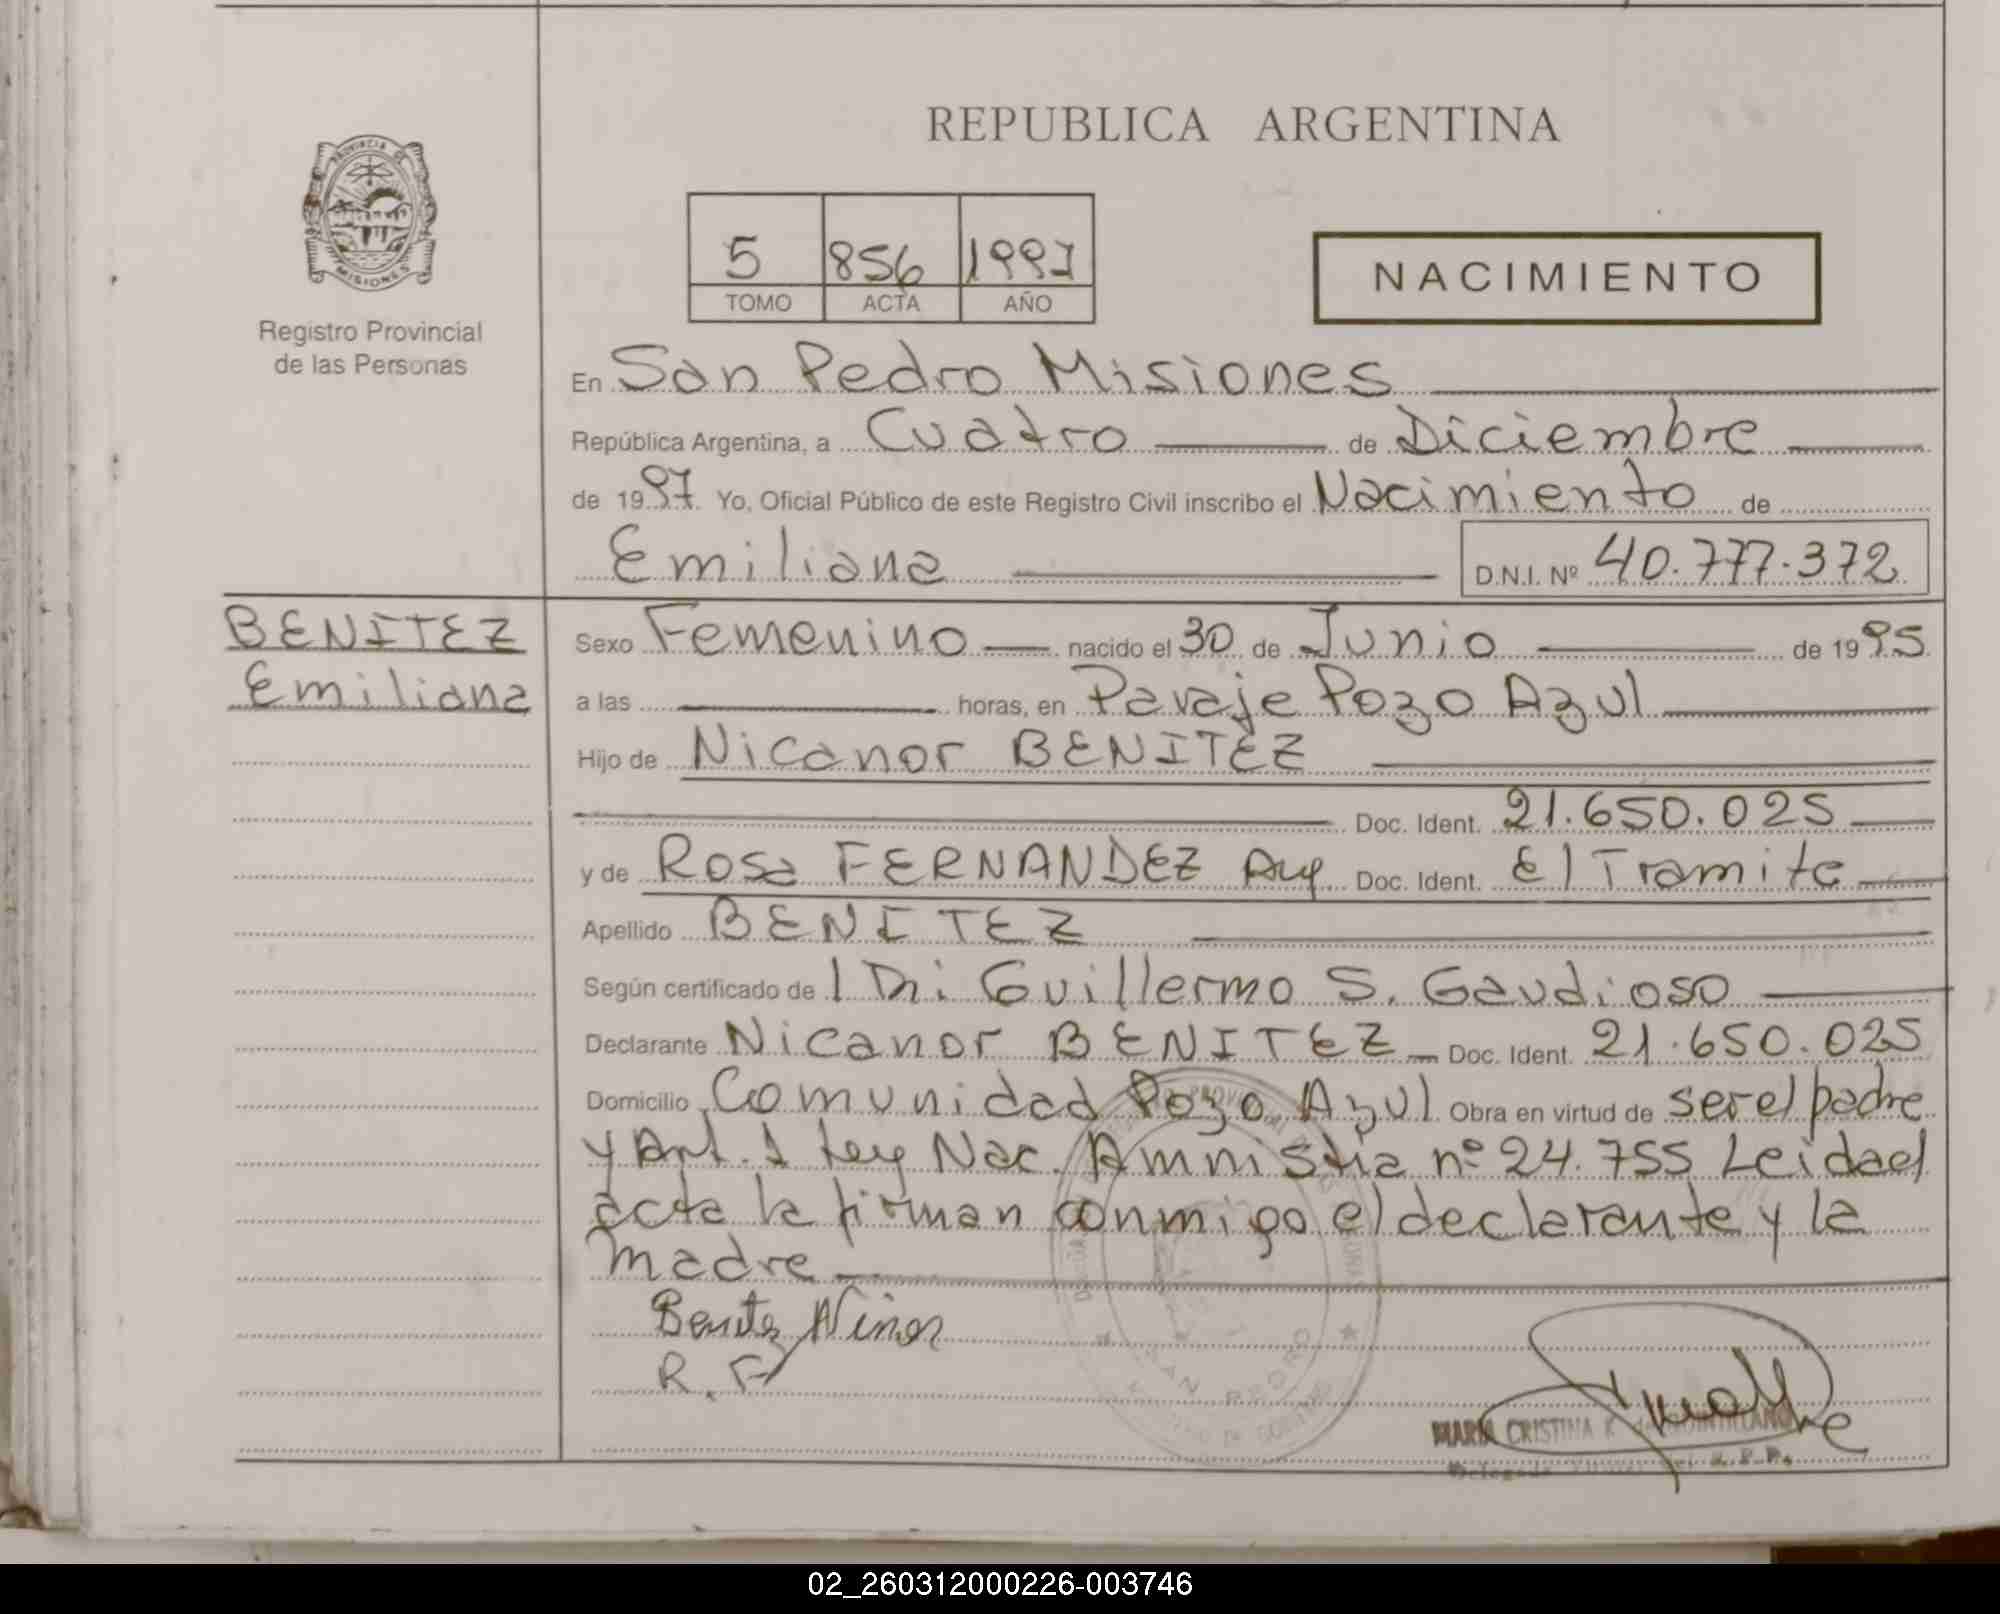 REPUBLICA ARGENTINA
PROVINCIA DE
MISIONES
Registro Provincial
de las Personas
5 856 1997
TOMO ACTA AÑO
NACIMIENTO
En San Pedro Misiones
República Argentina, a Cuatro de Diciembre
de 1997 Yo, Oficial Público de este Registro Civil inscribo el Nacimiento de
Emiliana D.N.I. Nº 40.777.372
BENITEZ
Emiliana
Sexo Femenino nacido el 30 de Junio de 1995
a las horas, en Paraje Pozo Azul
Hijo de Nicanor BENITEZ
Doc. Ident. 21.650.025
y de Rosa FERNANDEZ Arg Doc. Ident. E/Tramite
Apellido BENITEZ
Según certificado de Guillermo S. Gaudioso
Declarante Nicanor BENITEZ Doc. Ident. 21.650.025
Domicilio Comunidad Pozo Azul Obra en virtud de ser el padre
y Art. 1 Ley Nac. Amnistia nº 24.755 Leida el
acta la firman conmigo el declarante y la
madre
Benitez
R. F
SAN PEDRO
MARIA CRISTINA K. de
R.P.P.
02_260312000226-003746